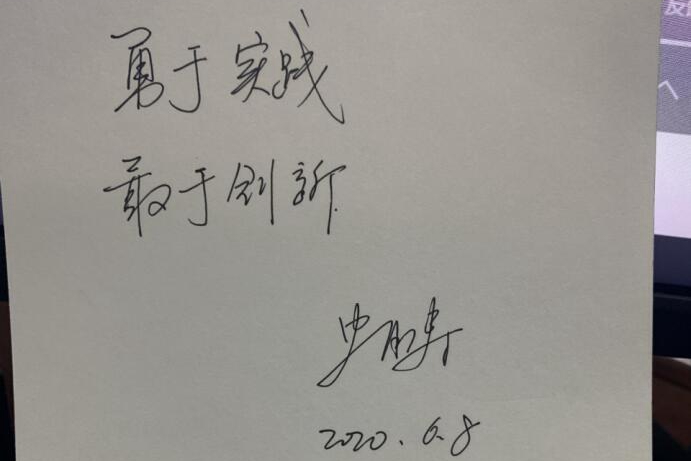 勇于实践
敢于创新
2020.6.8